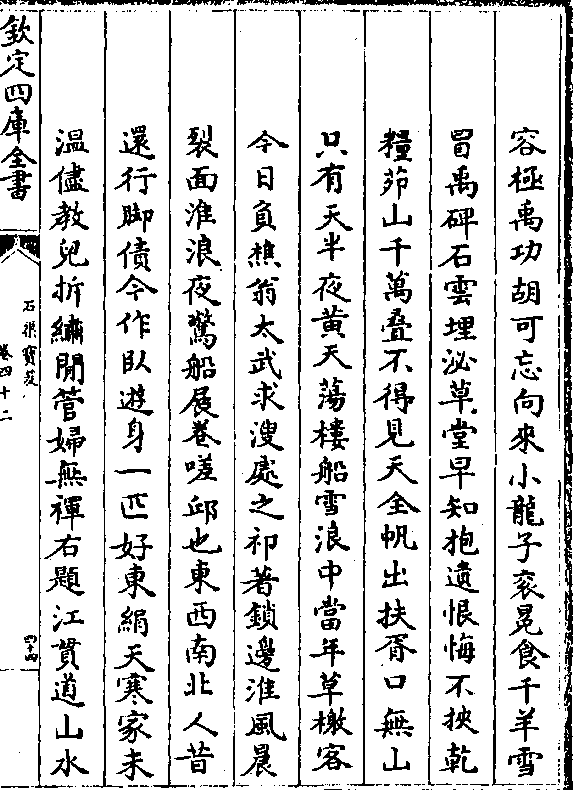 容極禹功胡可忘向來小龍子衮冕食千羊雪
冒禹碑石雲埋泌草堂早知抱遺恨悔不挾乾
糧茆山千萬疊不得見天全帆出扶胥口無山
只有天半夜黄天蕩樓船雪浪中當年草檄客
今日負樵翁太武求溲處之祁著鎖邊淮風晨
裂面淮浪夜驚船展卷嗟邱也東西南北人昔
還行脚債今作臥遊身一匹好東絹天寒家未
温儘教兒折繡閒管婦無褌右題江貫道山水
欽定四庫全書
石渠寶笈
卷四十二
四十四